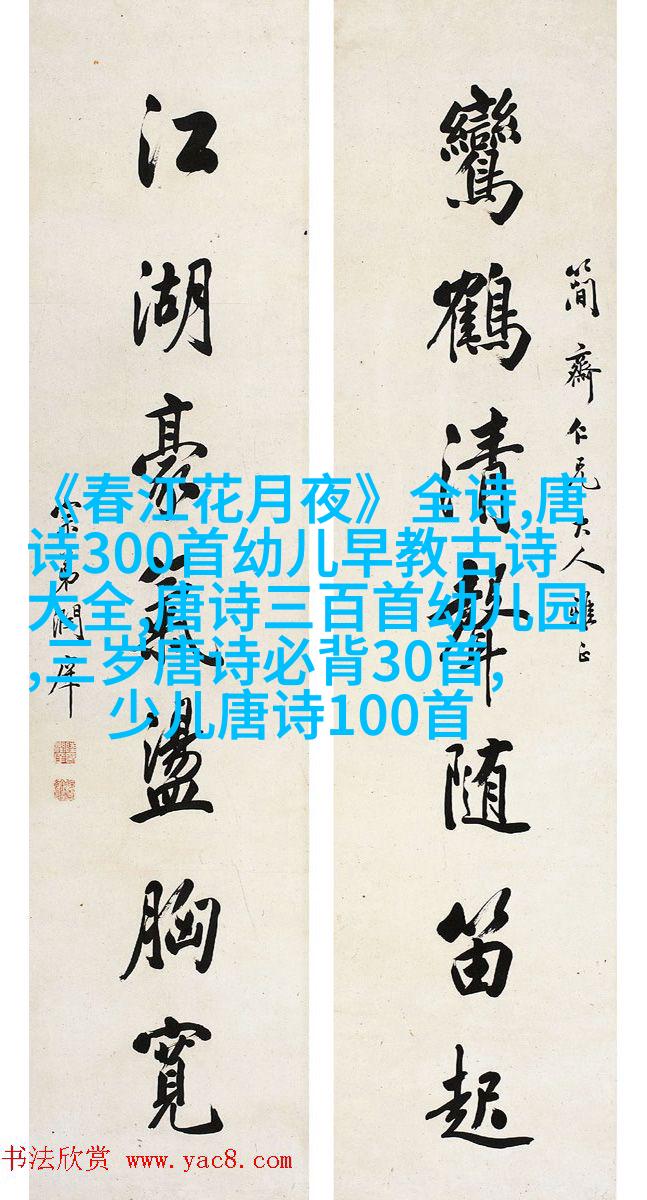 鸞鶴清聲随笛起
簡齋仁兄大人雅正
江湖豪氣盪胸寬
弟潤庠
《春江花月夜》全诗,唐
诗300首幼儿早教古诗
大全,唐诗三百首幼儿园
,三岁唐诗必背30首,
少儿唐诗100首
书法欣赏 www.yac8.com